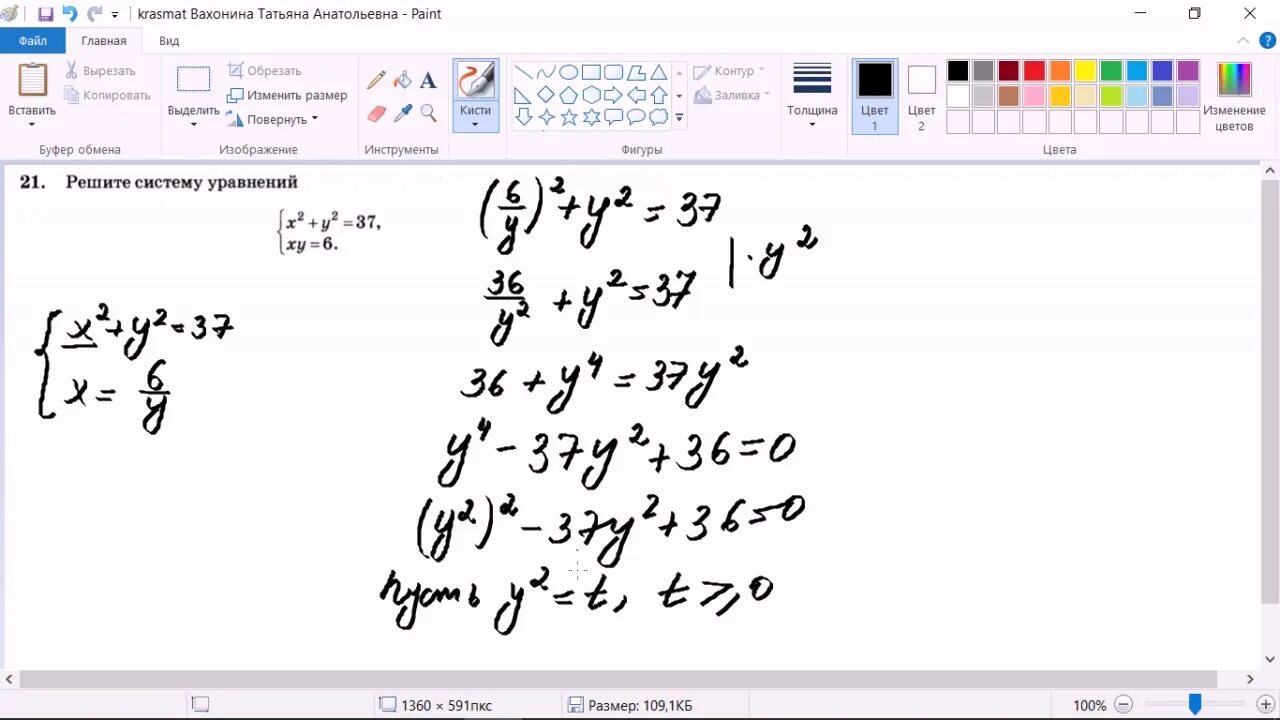 krasmat Вахонина Татьяна Анатольевна - Paint
Файл Главная Вид
Вставить
Вырезать
Копировать
Буфер обмена
Выделить
Обрезать
Изменить размер
Повернуть
Изображение
A
Инструменты
Кисти
Контур
Заливка
Фигуры
Толщина
Цвет 1
Цвет 2
Изменение цветов
Цвета
21. Решите систему уравнений
{x² + y² = 37,
xy = 6.
{x² + y² = 37
x = 6/y
(6/y)² + y² = 37
36/y² + y² = 37 | · y²
36 + y⁴ = 37y²
y⁴ - 37y² + 36 = 0
(y²)² - 37y² + 36 = 0
пусть y² = t, t ⩾ 0
1360 × 591пкс
Размер: 109,1КБ
100%